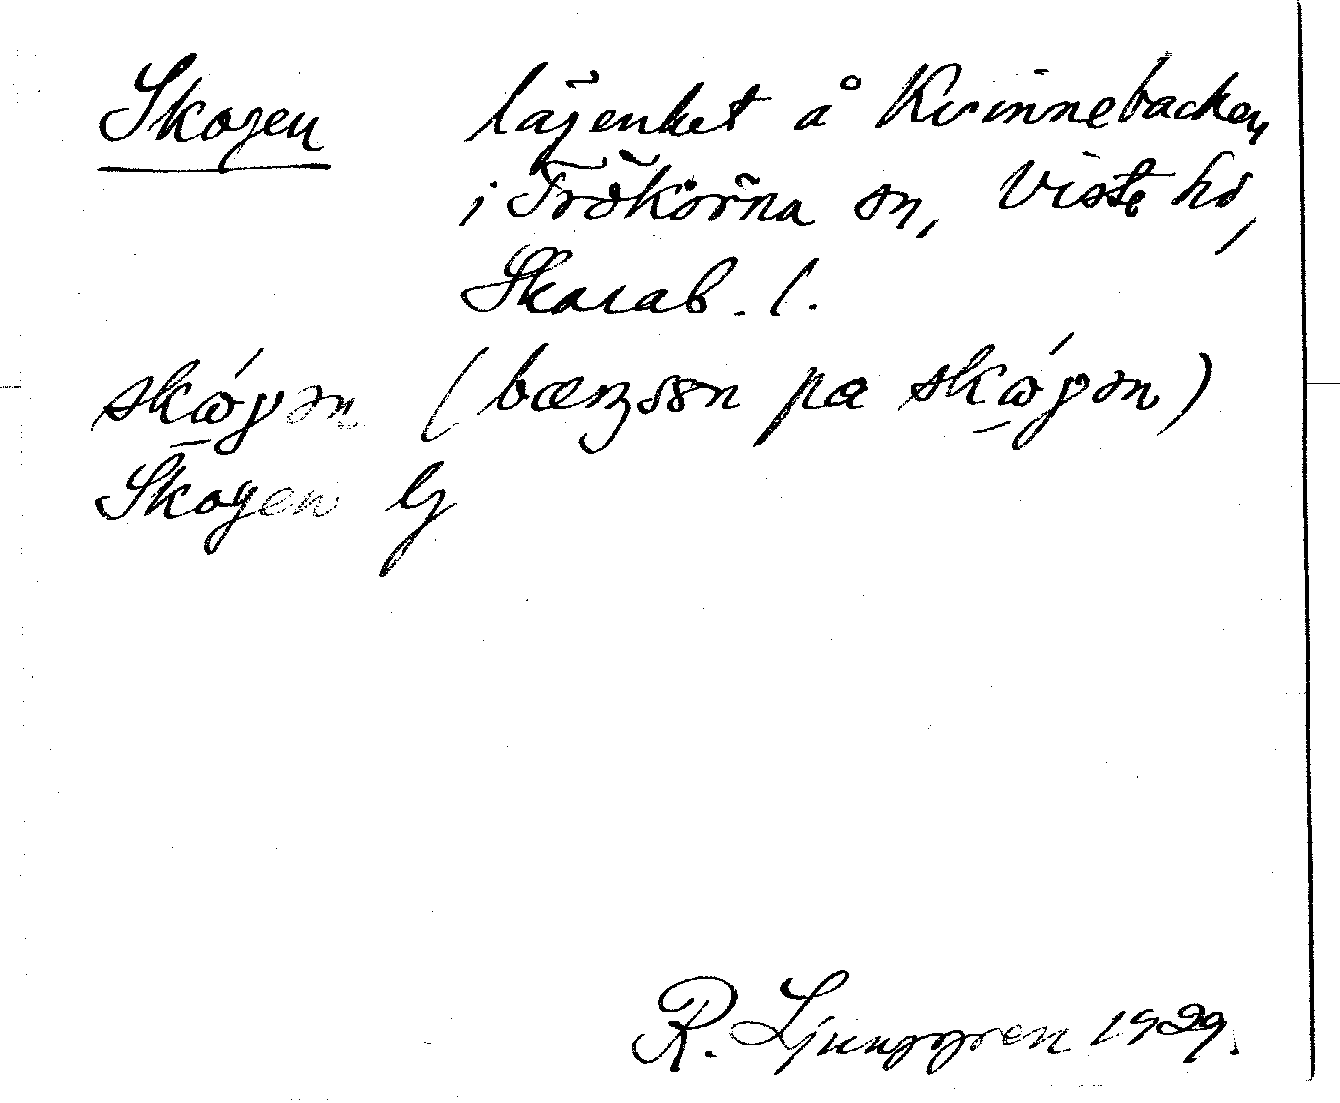 Skogen lägenhet å Kvinnebacken,
i Trökörna sn, Viste hd,
Skarab. l.
skógən ( pa skógən)
Skogen G
R. Ljunggren 1929.